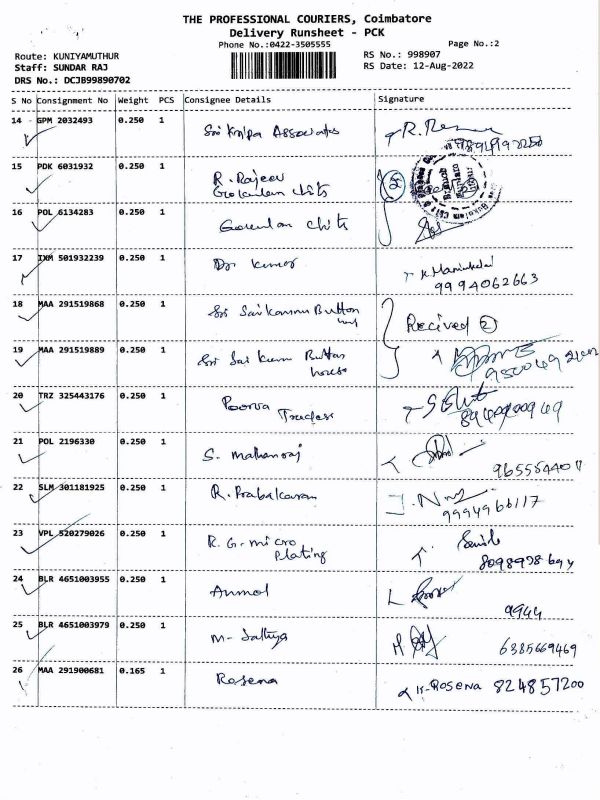 THE PROFESSIONAL COURIERS, Coimbatore
Delivery Runsheet - PCK
Phone No.:0422-3505555
Page No.:2
Route: KUNIYAMUTHUR
RS No.: 998907
Staff: SUNDAR RAJ
RS Date: 12-Aug-2022
DRS No.: DCJB99890702
S No Consignment No Weight PCS Consignee Details Signature
14 GPM 2032493 0.250 1 Sri Kalpa Associates
15 PDK 6031932 0.250 1 R. Rajeev
Gokulam chits
②
16 POL 6134283 0.250 1 Gokulam Chits
17 IXM 501932239 0.250 1 Dr Kumar
9994062663
18 MAA 291519868 0.250 1 Sri Sai Kannu Button
Recived ②
19 MAA 291519889 0.250 1 Sri Sai Kannu Button
house
20 TRZ 325443176 0.250 1 Poorva
Traders
21 POL 2196330 0.250 1 S. Mathanraj
22 SLM 301181925 0.250 1 R. Prabakaran
23 VPL 520279026 0.250 1 R. G. micro
Plating
24 BLR 4651003955 0.250 1 Anmol
9944
25 BLR 4651003979 0.250 1 M- Sathya
6385669469
26 MAA 291900681 0.165 1 Rosena K-Rosena 824857200